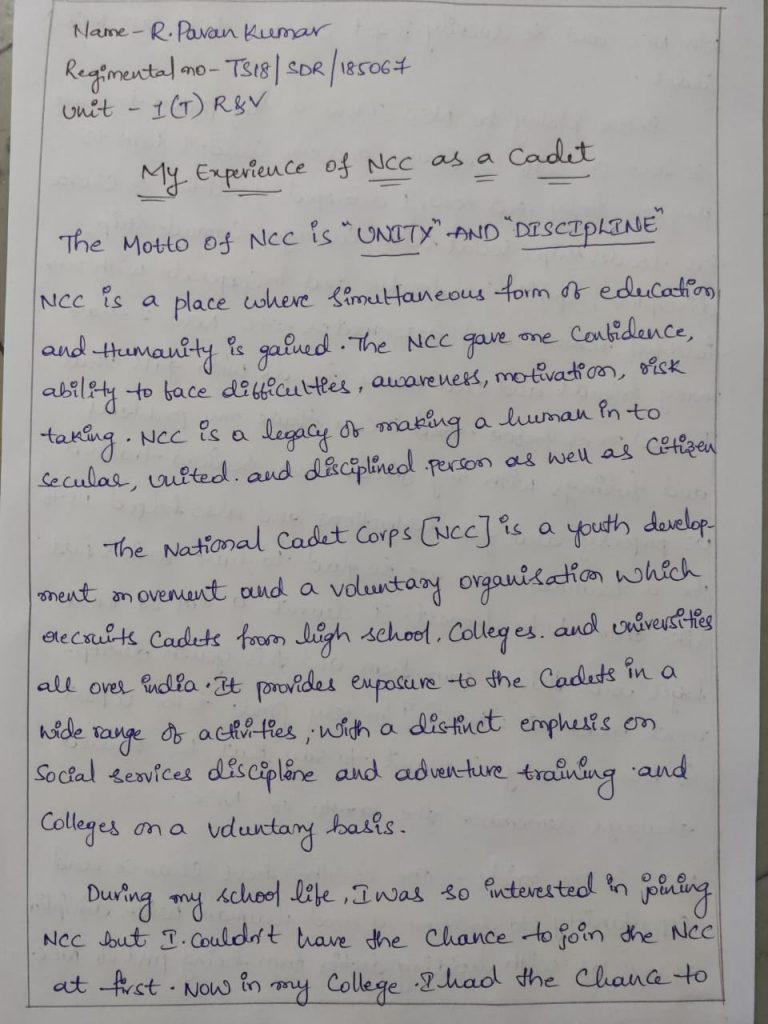 Name - R. Pavan Kumar
Regimental no - TS18/SDR/185067
Unit - 1(T) R&V
My Experience of NCC as a Cadet
The Motto of NCC is "UNITY" AND "DISCIPLINE"
NCC is a place where simultaneous form of education
and Humanity is gained. The NCC gave me Confidence,
ability to face difficulties, awareness, motivation, risk
taking. NCC is a legacy of making a human in to
secular, united. and disciplined person as well as Citizen
The National Cadet Corps [NCC] is a youth develop-
ment movement and a voluntary organisation which
recruits Cadets from high school, Colleges. and universities
all over india. It provides exposure to the Cadets in a
wide range of activities, with a distinct emphesis on
Social services discipline and adventure training and
Colleges on a voluntary basis.
During my school life, I was so interested in joining
NCC but I. couldn't have the Chance to join the NCC
at first. Now in my College. I had the Chance to